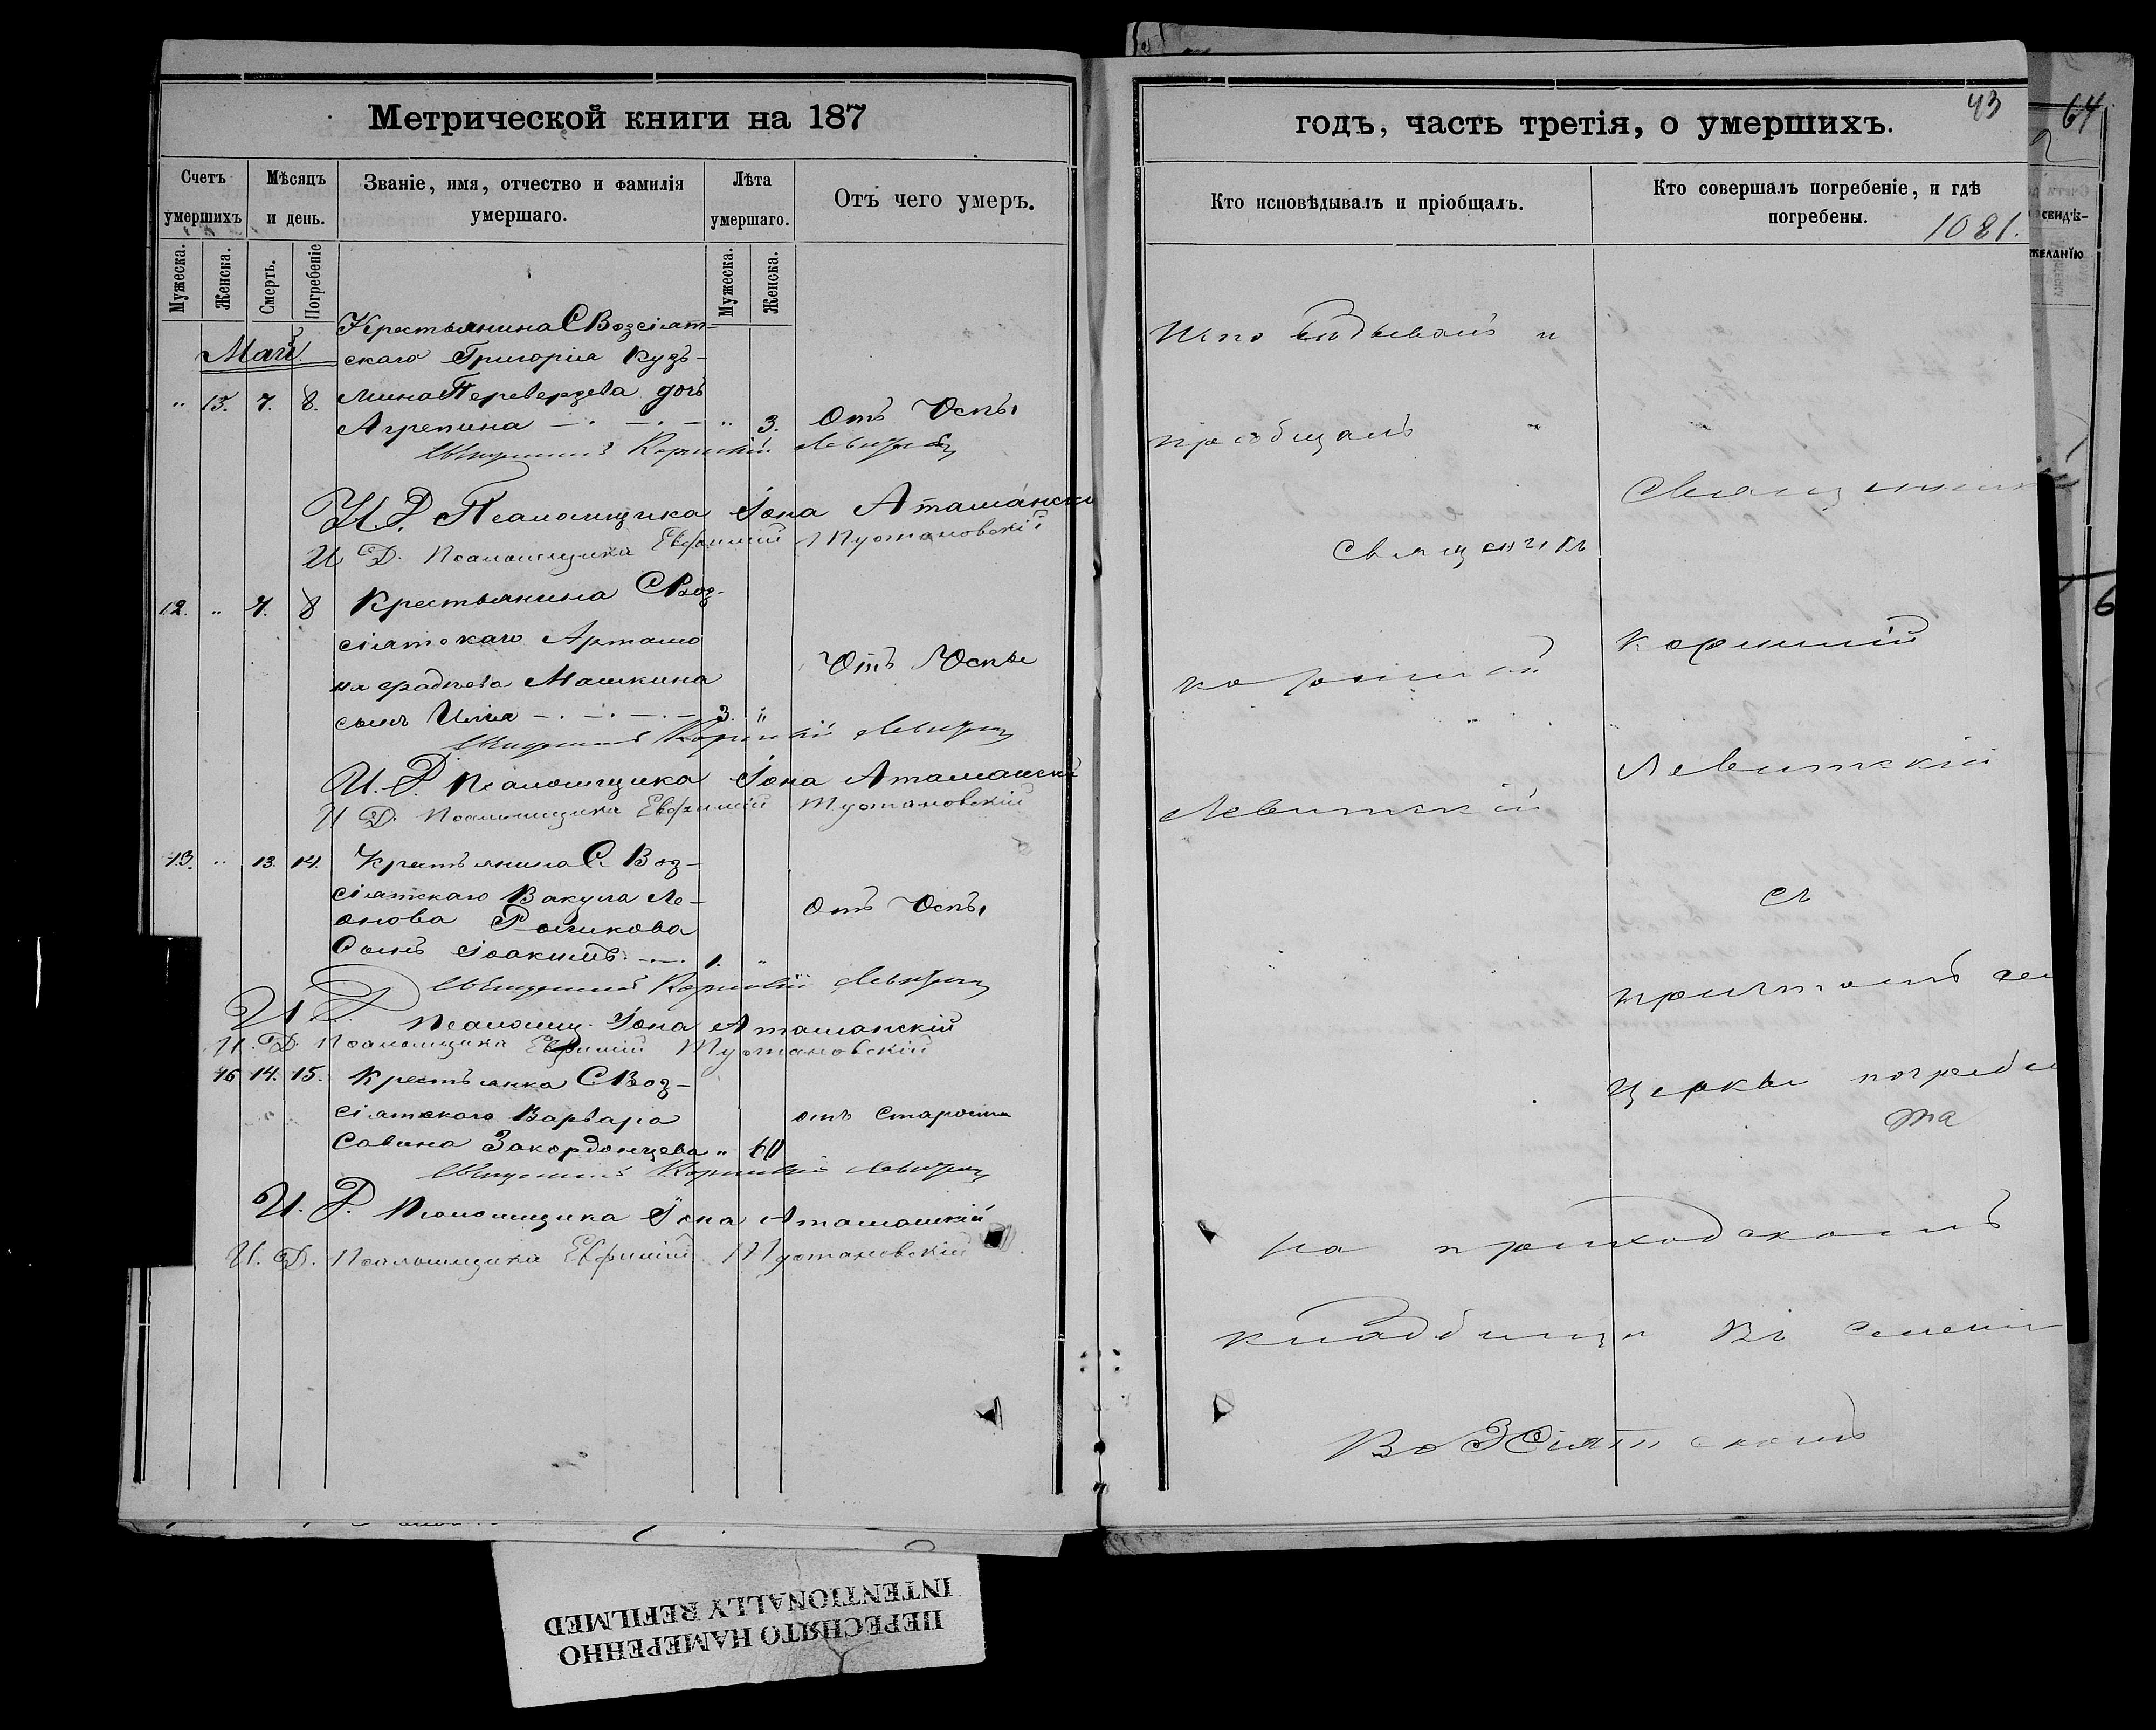 Метрической книги на 187
Счетъ умершихъ
Мѣсяцъ и день.
Званіе, имя, отчество и фамилія умершаго.
Лѣта умершаго.
Отъ чего умеръ.
Мужеска.
Женска.
Смерть.
Погребеніе
Мужеска.
Женска.
Май
Крестьянина С Возсіят-
скаго Григорія Кузь-
" 15. 7. 8. мина Переверзева дочь
Агрепина " 3. Отъ Оспы
Священникъ Корнилій Левитскій
И. Д. Псаломщика Іона Атаманскі
И Д. Псаломщика Евфимій Тустановскій
12. " 7. 8 Крестьянина С Воз-
сіятскаго Артамо
на Фадѣева Машкина Отъ Оспы
сынъ Илія 3. "
Священникъ Корнилій Левитскій
И. Д. Псаломщика Іона Атаманскі
И Д. Псаломщика Евфимій Тустановскій
13. " 13. 14. Крестьянина С. Воз-
сіятскаго Вакула Ле-
онова Отъ Оспы
Сынъ Іоакимъ 1. "
Священникъ Корнилій Левитскій
И. Д. Псаломщ. Іона Атаманскій
И. Д. Псаломщика Евфимій Тустановскій
16 14. 15. Крестьянка С Воз-
сіятскаго Варвара отъ Старости
Савина Закордонцева " 60
Священникъ Корнилій Левитскій
И. Д. Псаломщика Іона Атаманскій
И. Д. Псаломщика Евфимій Тустановскій
годъ, часть третія, о умершихъ.
43
64
Кто исповѣдывалъ и пріобщалъ.
Кто совершалъ погребеніе, и гдѣ погребены.
1081.
свидѣ-
желанію
Исповѣдывалъ и
пріобщалъ
Священникъ
Корнилій
Левитскій
Священник
Корнилій
Левитскій
съ
причтомъ
Церкви погребе
та
на приходскомъ
кладбищи въ селеніи
ВоЗСіятскомъ
6
ПЕРЕСНЯТО НАМЕРЕННО
INTENTIONALLY REFILMED